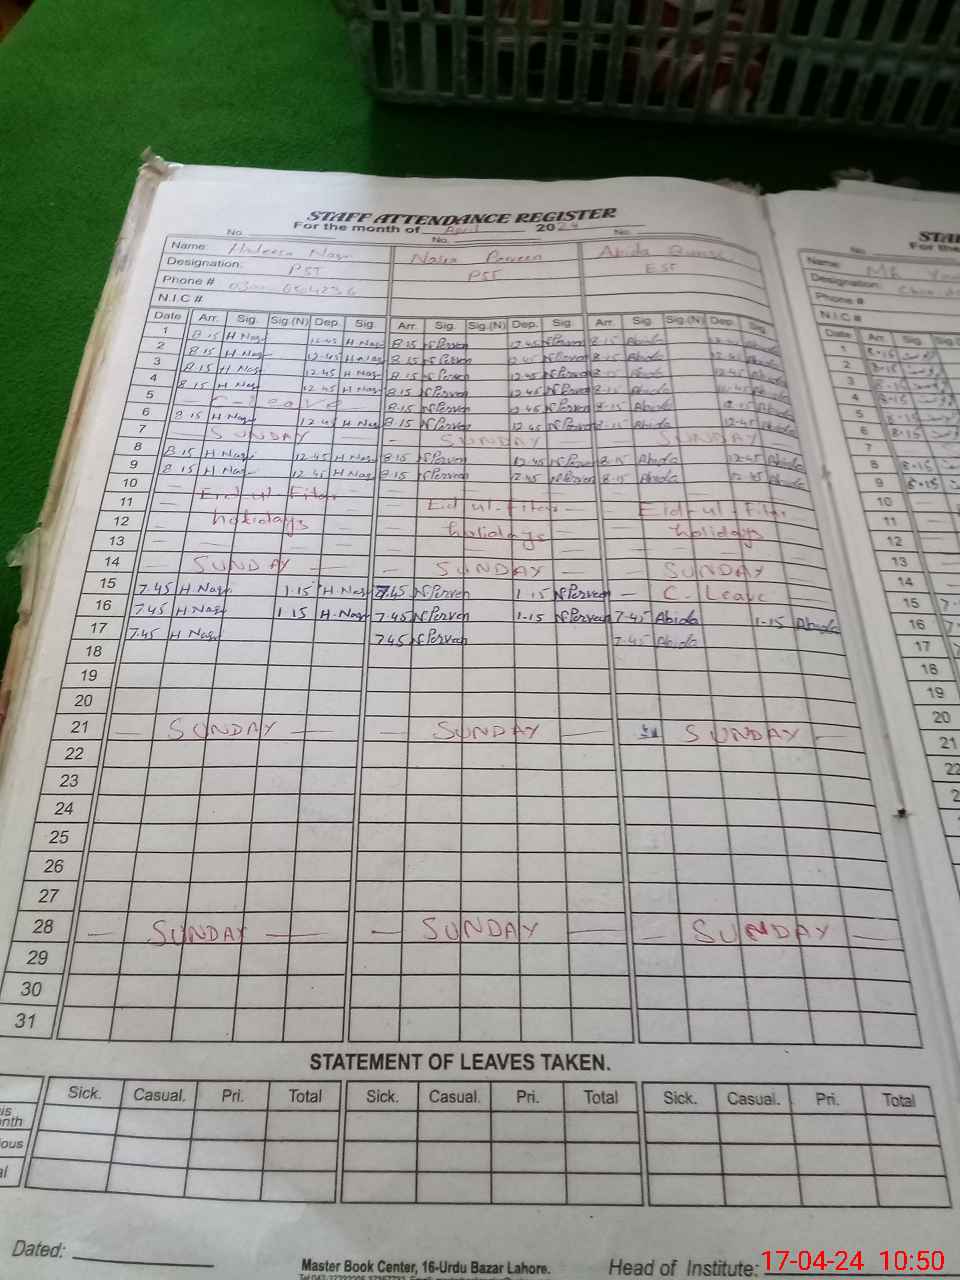 STAFF ATTENDANCE REGISTER
For the month of April 2024
No. No. No.
Name: Haleera Naz Nazia Perveen Abida
Designation. PST PST EST
Phone #
N.I.C #
Date Arr. Sig. Sig.(N) Dep. Sig. Arr. Sig. Sig.(N) Dep. Sig. Arr. Sig. Sig.(N) Dep. Sig.
1 8.15 H Naz 12.45 H Naz 8.15 N Perven 12.45 N Perven 8.15 Abida 12.45 Abida
2 8.15 H Naz 12.45 H Naz 8.15 N Perven 12.45 N Perven 8.15 Abida 12.45 Abida
3 8.15 H Naz 12.45 H Naz 8.15 N Perven 12.45 N Perven 8.15 Abida 12.45 Abida
4 8.15 H Naz 12.45 H Naz 8.15 N Perven 12.45 N Perven 8.15 Abida 12.45 Abida
5 C-Leave 8.15 N Perven 12.45 N Perven 8.15 Abida Abida
6 8.15 H Naz 12.45 H Naz 8.15 N Perven 12.45 N Perven 8.15 Abida 12.45 Abida
7 SUNDAY SUNDAY SUNDAY
8 8.15 H Naz 12.45 H Naz 8.15 N Perven 12.45 N Perven 8.15 Abida 12.45 Abida
9 8.15 H Naz 12.45 H Naz 8.15 N Perven 12.45 N Perven 8.15 Abida 12.45 Abida
10
11 Eid-ul-Fiter Eid ul-Fiter Eid-ul-Fiter
12 holidays holidays holidays
13
14 SUNDAY SUNDAY SUNDAY
15 7.45 H Naz 1.15 H Naz 7.45 N Perven 1.15 N Perven C-Leave
16 7.45 H Naz 1.15 H Naz 7.45 N Perven 1-15 N Perven 7.45 Abida 1-15 Abida
17 7.45 H Naz 7.45 N Perven 7.45 Abida
18
19
20
21 SUNDAY SUNDAY SUNDAY
22
23
24
25
26
27
28 SUNDAY SUNDAY SUNDAY
29
30
31
STATEMENT OF LEAVES TAKEN.
Sick. Casual. Pri. Total Sick. Casual. Pri. Total Sick. Casual. Pri. Total
Dated:
Master Book Center, 16-Urdu Bazar Lahore.
Head of Institute:
17-04-24 10:50
Name:
Designation:
Phone #
N.I.C #
Date Arr. Sig.
1 8.15
2 8.15
3 8.15
4 8.15
5 8.15
6 8.15
7
8 8.15
9 8.15
10
11
12
13
14
15
16
17
18
19
20
21
22
23